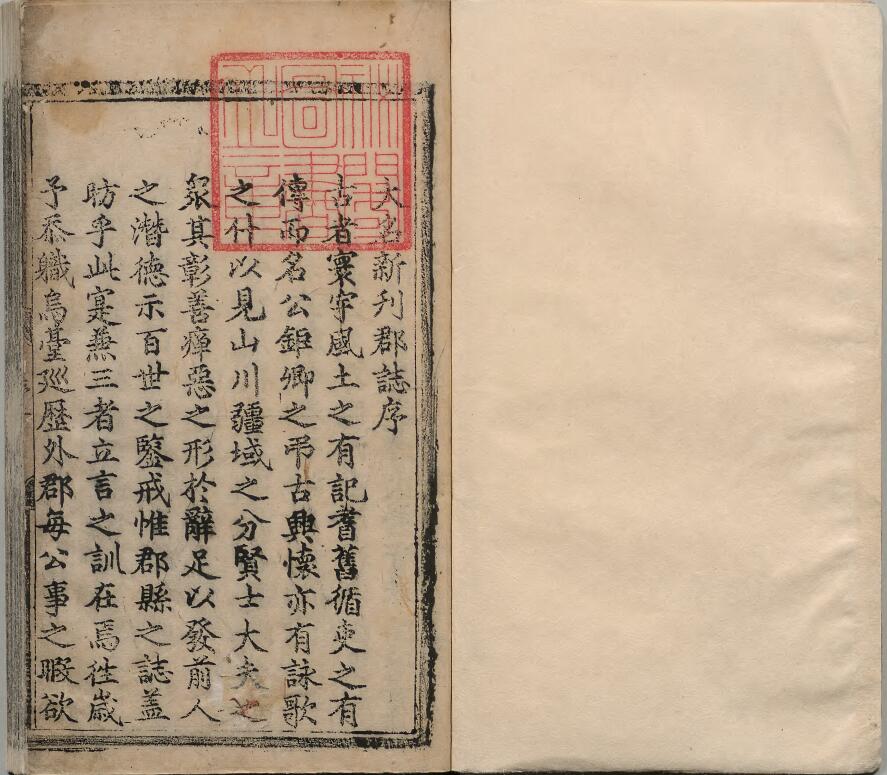 大名新刋郡誌序
古者寰宇風土之有記耆舊循吏之有
傳而名公鉅卿之弔古興懷亦有詠歌
之什以見山川疆域之分賢士大夫之
衆其彰善癉惡之形於辭足以發前人
之潛德示百世之鑒戒惟郡縣之誌盖
昉乎此寔兼三者立言之訓在焉徃歳
予忝職烏臺廵歷外郡每公事之暇欲